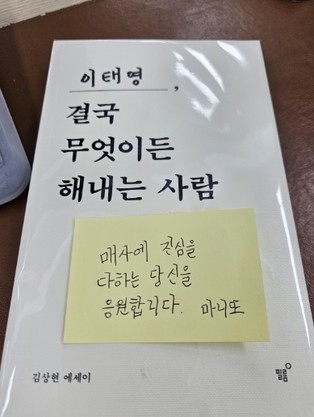 이태영,
결국
무엇이든
해내는 사람
매사에 진심을
다하는 당신을
응원합니다. 마니또
김상현 에세이
필름